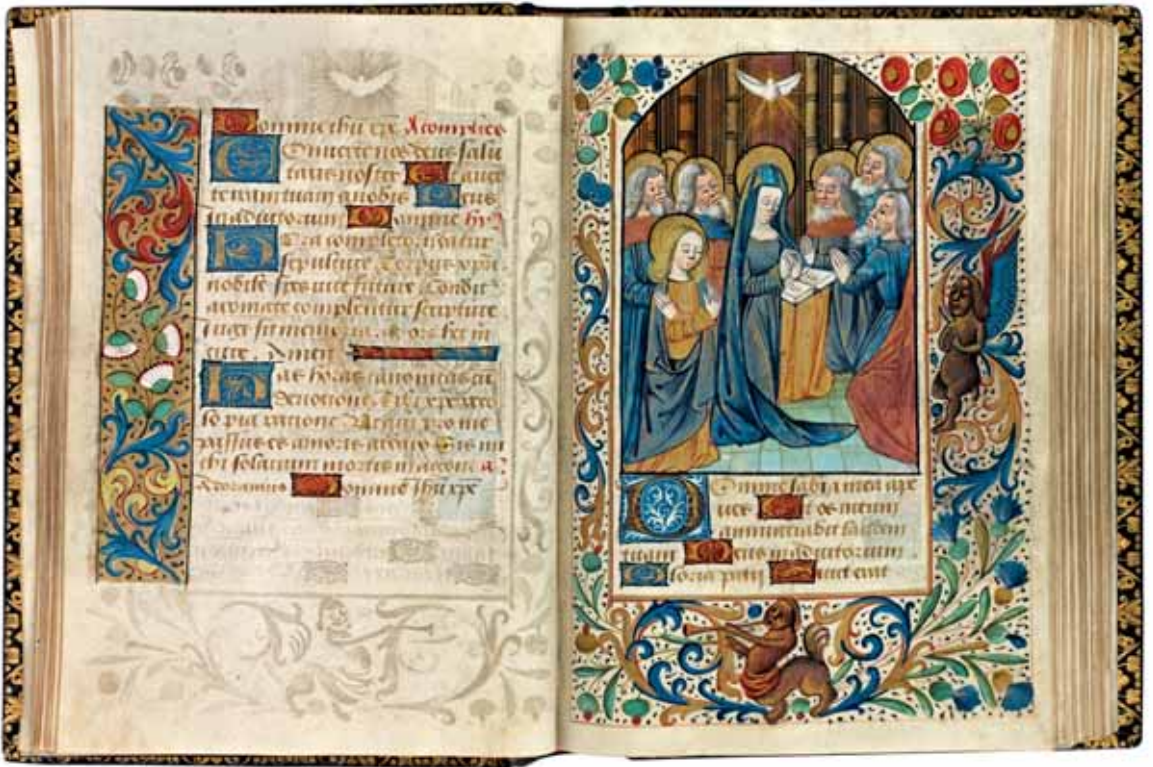 Domine ihu xpe A complies
Converte nos deus salu
taris noster Et aver
te iram tuam a nobis Deus
in adiutorium Domine
Hora completo datur
sepulture Corpus xpi
nobile spes vite future Condit
aromate complentur scripture
iugi sit memoria mors hec m
cure. Amen
Has horas canonicas cu
devotione Tibi xpe reco
lo pia ratione Ut qui pro me
passus es amoris ardore Sis mi
chi solatium mortis in agone
Adoramus Domine ihu xpe
Domine labia mea ape
ries Et os meum
annunciabit laudem
tuam Deus in adiutorium
Gloria patri Sicut erat